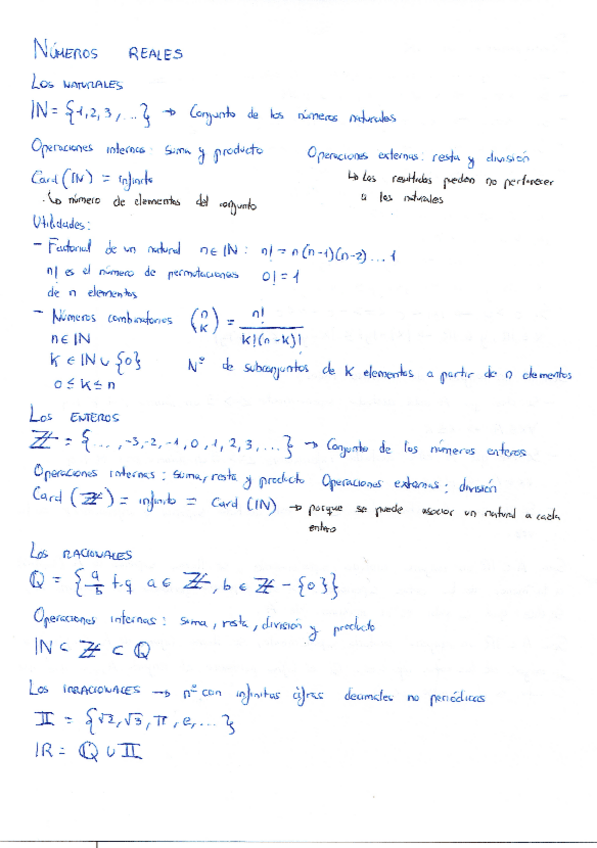 NÚMEROS REALES
LOS NATURALES
ℕ = {1, 2, 3, ...} → Conjunto de los números naturales
Operaciones internas: suma y producto Operaciones externas: resta y división
Card (ℕ) = infinito ↳ Los resultados pueden no pertenecer
↳ número de elementos del conjunto a los naturales
Utilidades:
- Factorial de un natural n ∈ ℕ : n! = n(n-1)(n-2)...1
n! es el número de permutaciones 0! = 1
de n elementos
- Números combinatorios (n k) = n! / k!(n-k)!
n ∈ ℕ
k ∈ ℕ ∪ {0} Nº de subconjuntos de k elementos a partir de n elementos
0 ≤ k ≤ n
LOS ENTEROS
ℤ = {..., -3, -2, -1, 0, 1, 2, 3, ...} → Conjunto de los números enteros
Operaciones internas: suma, resta y producto Operaciones externas: división
Card (ℤ) = infinito = Card (ℕ) → porque se puede asociar un natural a cada
entero
LOS RACIONALES
ℚ = {a/b t.q a ∈ ℤ, b ∈ ℤ - {0}}
Operaciones internas: suma, resta, división y producto
ℕ ⊂ ℤ ⊂ ℚ
LOS IRRACIONALES → nº con infinitas cifras decimales no periódicas
𝕀 = {√2, √3, π, e, ...}
ℝ = ℚ ∪ 𝕀